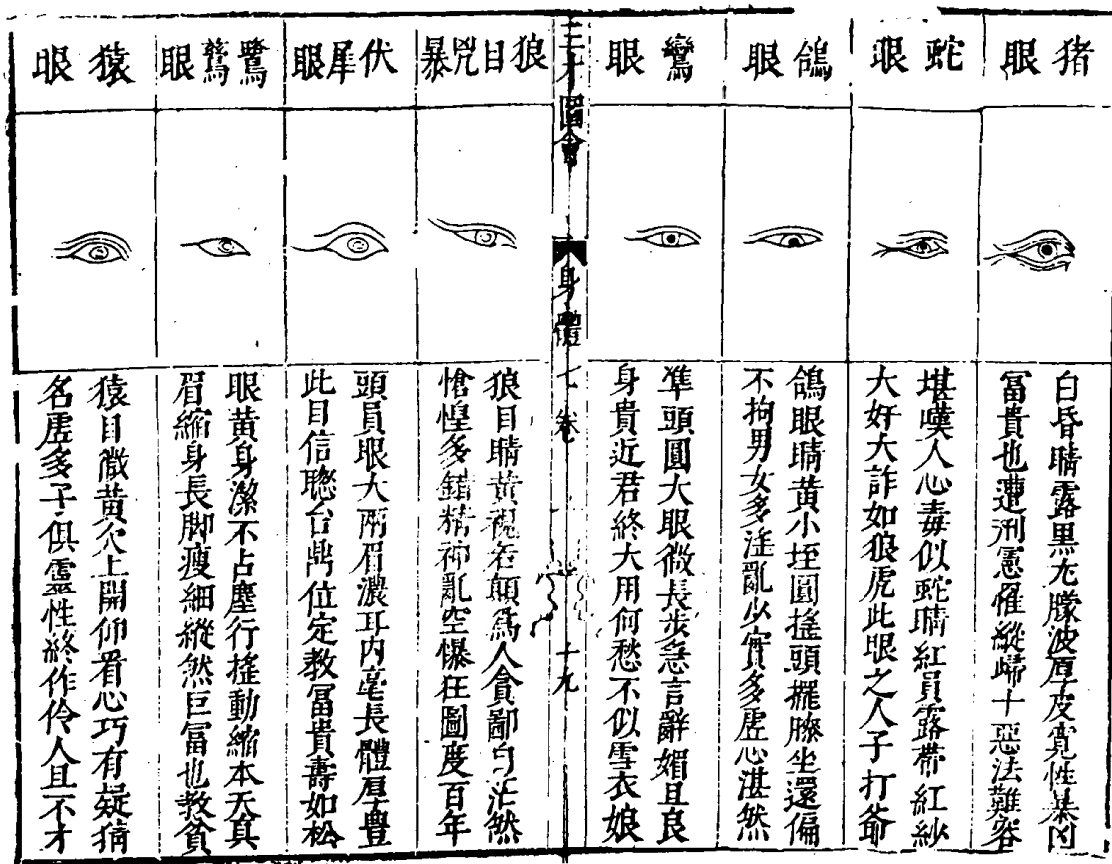 猪眼
白昏睛露黒尢朦波厚皮寛性暴凶
冨貴也遭刑憲罹縱歸十惡法難容
蛇眼
堪嘆人心毒似蛇睛紅員露帶紅紗
大奸大詐如狼虎此眼之人子打爺
鴿眼
鴿眼睛黃小垤圓搖頭擺膝坐還偏
不拘男女多滛亂少實多虚心湛然
鸞眼
凖頭圓大眼微長步急言辭媚且良
身貴近君終大用何愁不似雪衣娘
三才圖會
身體七卷
十九
狼目兇暴
狼目睛黃視若顛爲人貪鄙自茫然
愴惶多錯精神亂空㬥狂圖度百年
伏犀眼
頭員眼大兩眉濃耳内毫長體厚豊
此目信聰台鼎位定教冨貴壽如松
鷺鷥眼
眼黃身潔不占塵行搖動縮本天真
眉縮身長脚瘦細縱然巨冨也教貧
猿眼
猿目微黃欠上開仰看心巧有疑猜
名虚多子俱靈性終作伶人且不才